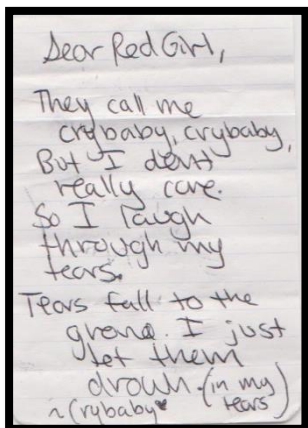 Dear Red Girl,
They call me
crybaby, crybaby,
But I dont
really care.
So I laugh
through my
tears.
Tears fall to the
grond. I just
let them
drown. (in my
tears)
~Crybaby